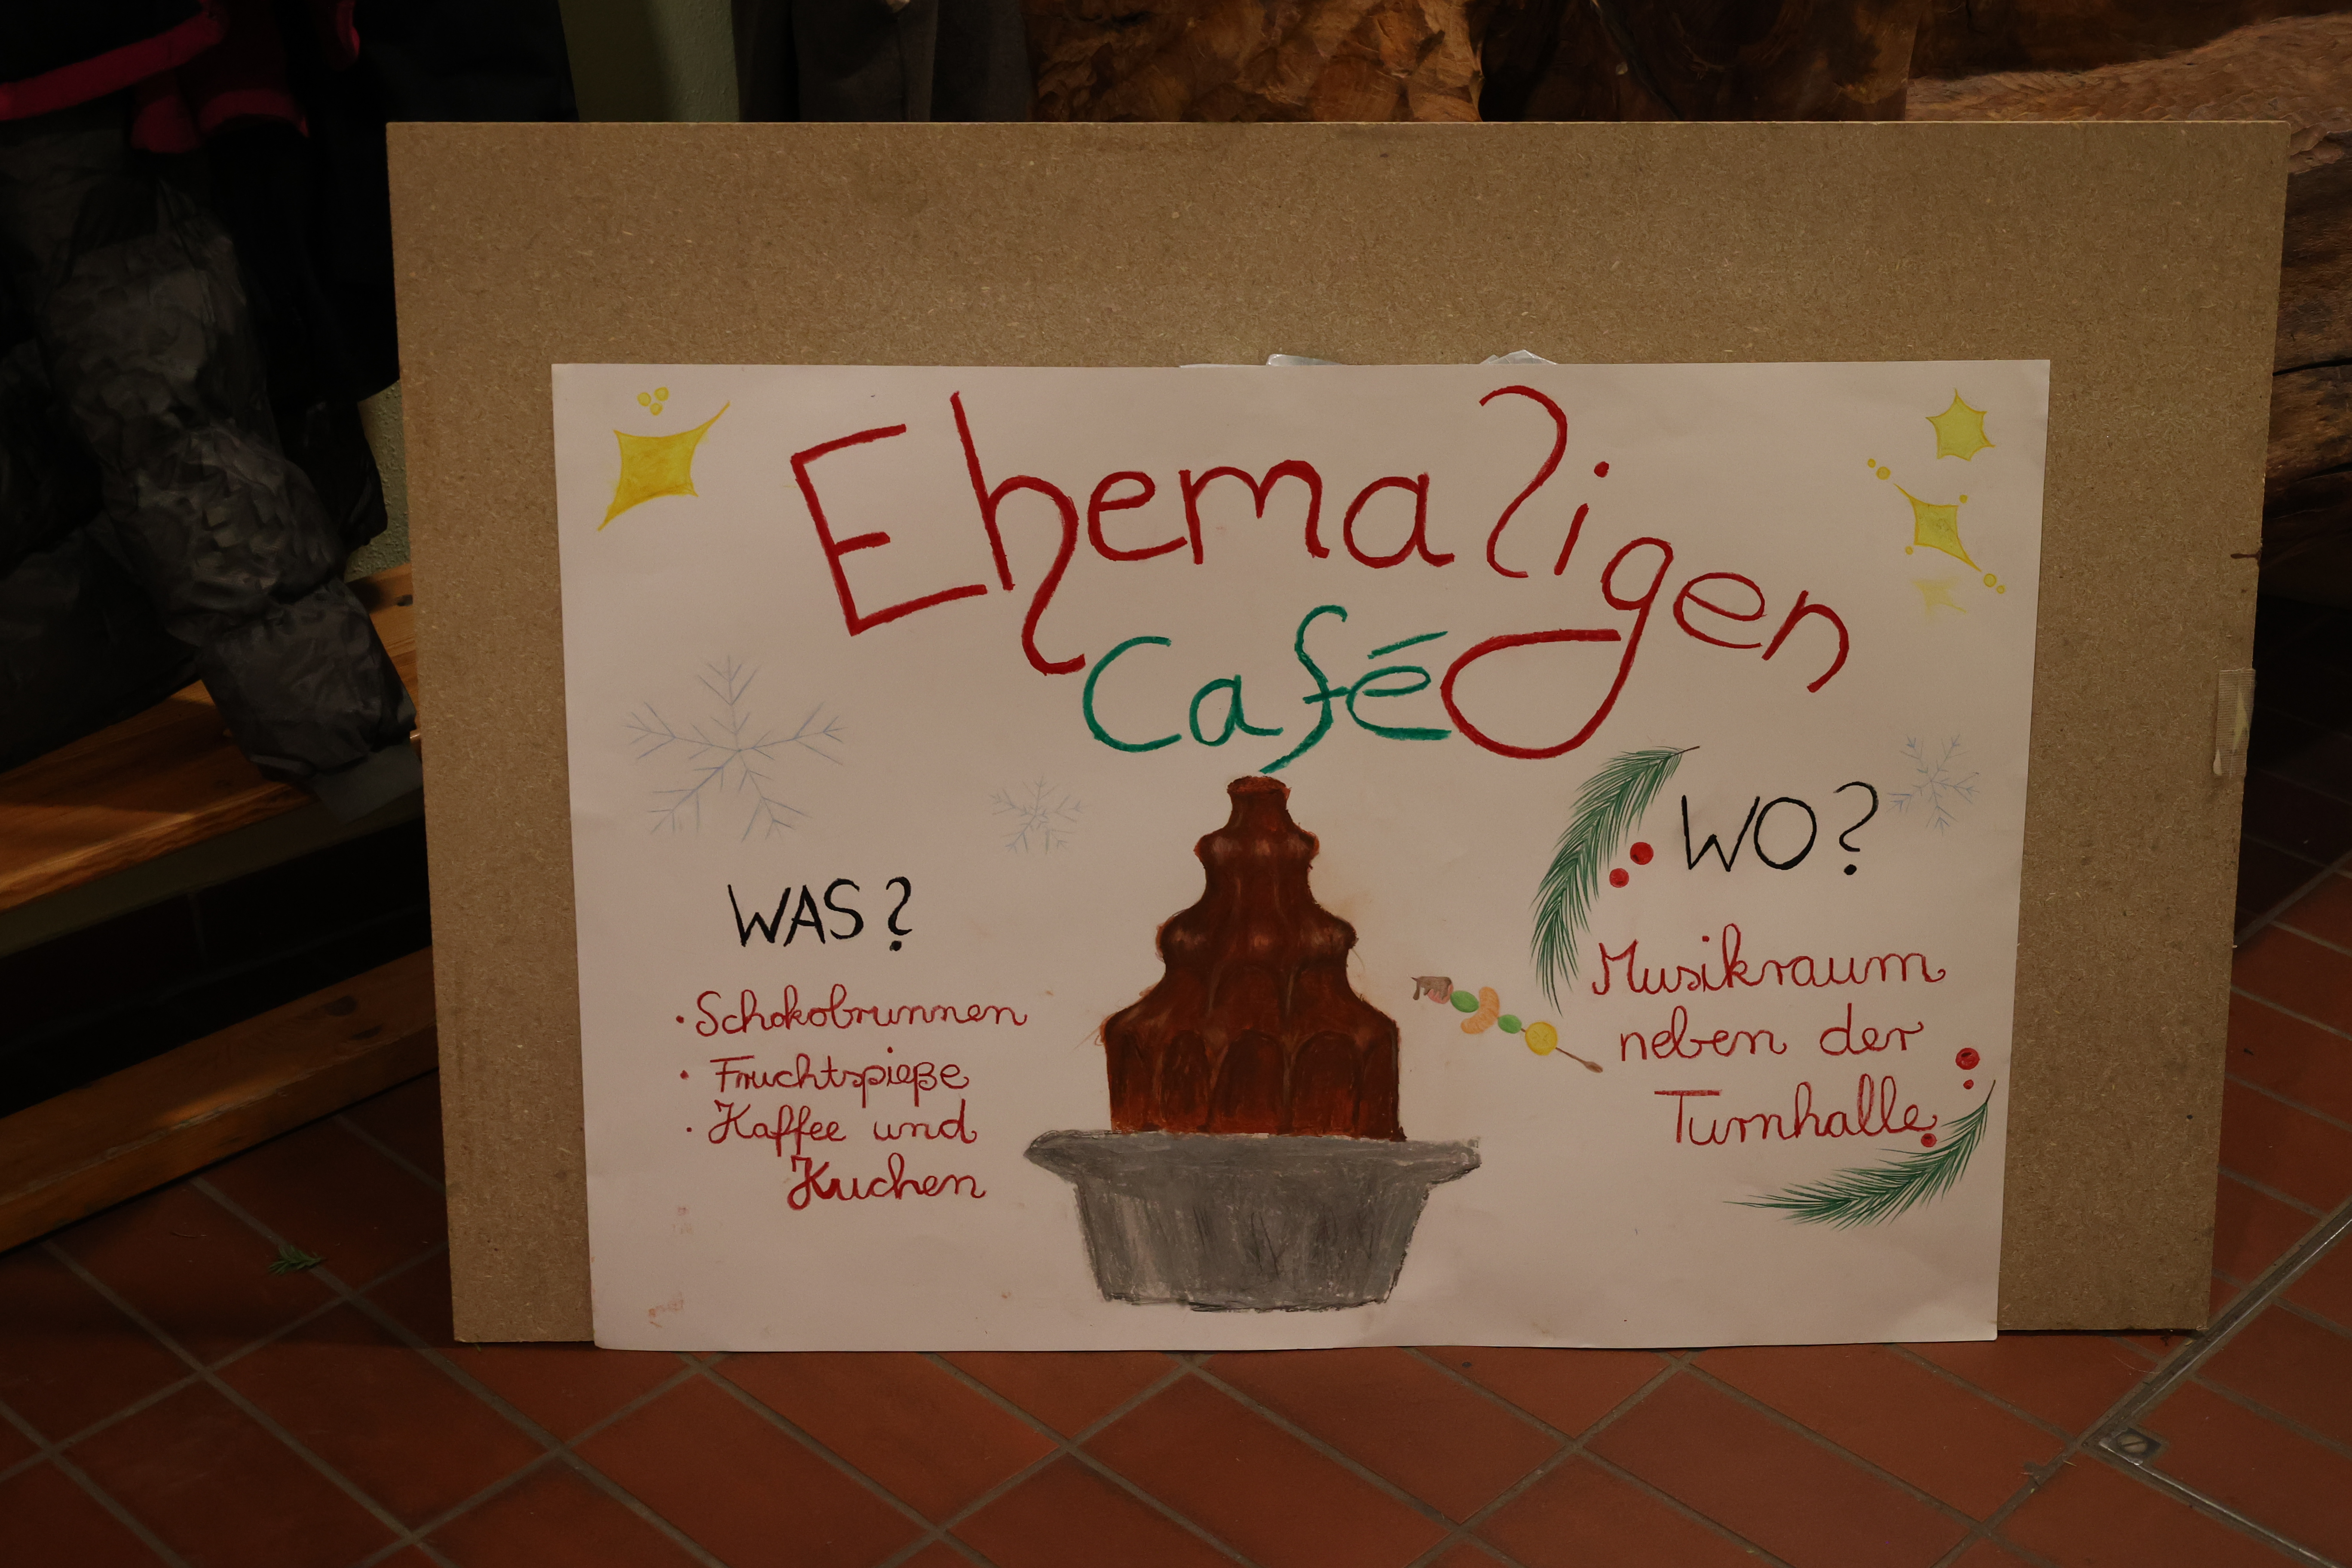 Ehemaligen
Café
WAS?
· Schokobrunnen
· Fruchtspieße
· Kaffee und
Kuchen
WO?
Musikraum
neben der
Turnhalle